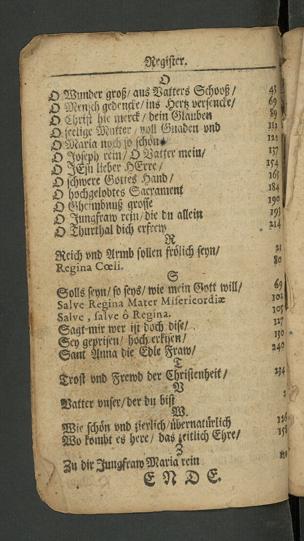 Register.
O
O Wunder groß/ aus Vatters Schooß/ 41
O Mensch gedencke/ ins Hertz versencke/ 69
O Christ hie merck/ dein Glauben 89
O seelige Mutter/ voll Gnaden und 111
O Maria noch so schön 122
O Joseph rein/ O Vatter mein/ 137
O JEsu lieber HErre/ 154
O schwere Gottes Hand/ 161
O hochgelobtes Sacrament 184
O Gheimbnuß grosse 190
O Jungfraw rein/ die du allein 195
O Thurthal dich erfrew 214
R
Reich und Armb sollen frölich seyn/ 21
Regina Cœli. 80
S
Solls seyn/ so seys/ wie mein Gott will/ 69
Salve Regina Mater Misericordiæ 102
Salve, salve ô Regina. 105
Sagt mir wer ist doch dise/ 127
Sey geprisen/ hoch 130
Sant Anna die Edle Fraw/ 240
T
Trost und Frewd der Christenheit/ 234
V
Vatter unser/ der du bist 2
W.
Wie schön und zierlich/ übernatürlich 126
Wo kombt es here/ das zeitlich Ehre/
Z
Zu dir Jungfraw Maria rein
ENDE.